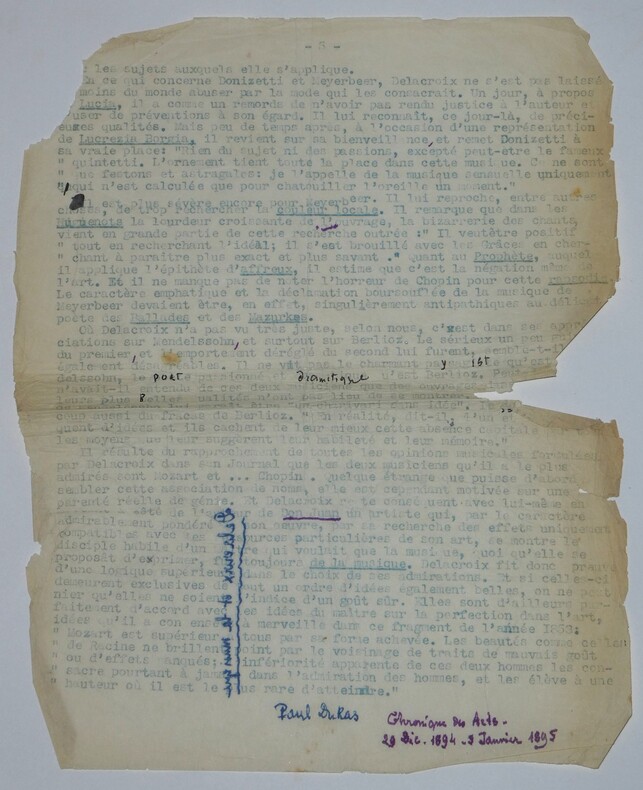 - 3 -
les sujets auxquels elle s'applique.
En ce qui concerne Donizetti et Meyerbeer, Delacroix ne s'est pas laissé
moins du monde abuser par la mode qui les consacrait. Un jour, à propos
Lucia, il a comme un remords de n'avoir pas rendu justice à l'auteur et
user de préventions à son égard. Il lui reconnaît, ce jour-là, de préci-
euses qualités. Mais peu de temps après, à l'occasion d'une représentation
de Lucrezia Borgia, il revient sur sa bienveill nce, et remet Donizetti à
sa vraie place: "Rien du sujet ni des passions, excepté peut-être le fameux
" quintetti. L'ornement tient toute la place dans cette musique. Ce ne sont
" que festons et astragales: je l'appelle de la musique sensuelle uniquement
" qui n'est calculée que pour chatouiller l'oreille un moment."
Il est plus sévère encore pour Meyerbeer. Il lui reproche, entre autres
choses, de trop rechercher la couleur locale. Il remarque que dans les
Huguenots la lourdeur croissante de l'ouvrage, la bizarrerie des chants
vient en grande partie de cette recherche outrée:" Il veut être positif
" tout en recherchant l'idéal; il s'est brouillé avec les Grâces en cher-
" chant à paraître plus exact et plus savant ." quant au Prophète, auquel
il applique l'épithète d'affreux, il estime que c'est la négation même de
l'art. Et il ne manque pas de noter l'horreur de Chopin pour cette
Le caractère emphatique et la déclamation boursouflée de la musique de
Meyerbeer devaient être, en effet, singulièrement antipathiques au délicat
poète des Ballades et des Mazurkas.
Où Delacroix n'a pas vu très juste, selon nous, c'est dans ses appr
ciations sur Mendelssohn, et surtout sur Berlioz. Le sérieux un peu
du premier, et l'emportement déréglé du second lui furent, semble-t-il
également désagréables. Il ne vit pas le charmant qu'est
delssohn, le poète dramatique qu'est Berlioz.
leurs plus belles qualités n'ont pas lieu de se montrer
du fracas de Berlioz. "En réalité, dit-il, l'un
quent d'idées et ils cachent de leur mieux cette absence capitale
les moyens que leur suggèrent leur habileté et leur mémoire."
Il résulte du rapprochement de toutes les opinions musicales formulées
par Delacroix dans son Journal que les deux musiciens qu'il a le plus
admirés sont Mozart et ... Chopin. quelque étrange que puisse d'abord
sembler cette association de noms, elle est cependant motivée sur une
parenté réelle de génie. Et Delacroix reste conséquent avec lui-même en
à côté de l'auteur de Don Juan un artiste qui, par le caractère
admirablement pondéré de son oeuvre, par se recherche des effets uniquement
compatibles avec les ressources particulières de son art, se montre le
disciple habile d'un maître qui voulait que la musique, quoi qu'elle se
proposât d'exprimer, fût toujours de la musique. Delacroix fit donc preuve
d'une logique supérieure dans le choix de ses admirations. Et si celles-ci
demeurent exclusives de tout un ordre d'idées également belles, on ne peut
nier qu'elles ne soient l'indice d'un goût sûr. Elles sont d'ailleurs par-
faitement d'accord avec les idées du maître sur la perfection dans l'art,
idées qu'il a con ens à merveille dans ce fragment de l'année 1853:
" Mozart est supérieur à tous par sa forme achevée. Les beautés comme celles
" de Racine ne brillent point par le voisinage de traits de mauvais goût
" ou d'effets manqués; l'infériorité apparente de ces deux hommes les con-
" sacre pourtant à jamais dans l'admiration des hommes, et les élève à une
" hauteur où il est le plus rare d'atteindre."
Delacroix et la musique
Paul Dukas
Chronique des Arts -
29 Dec. 1894 - 5 Janvier 1895